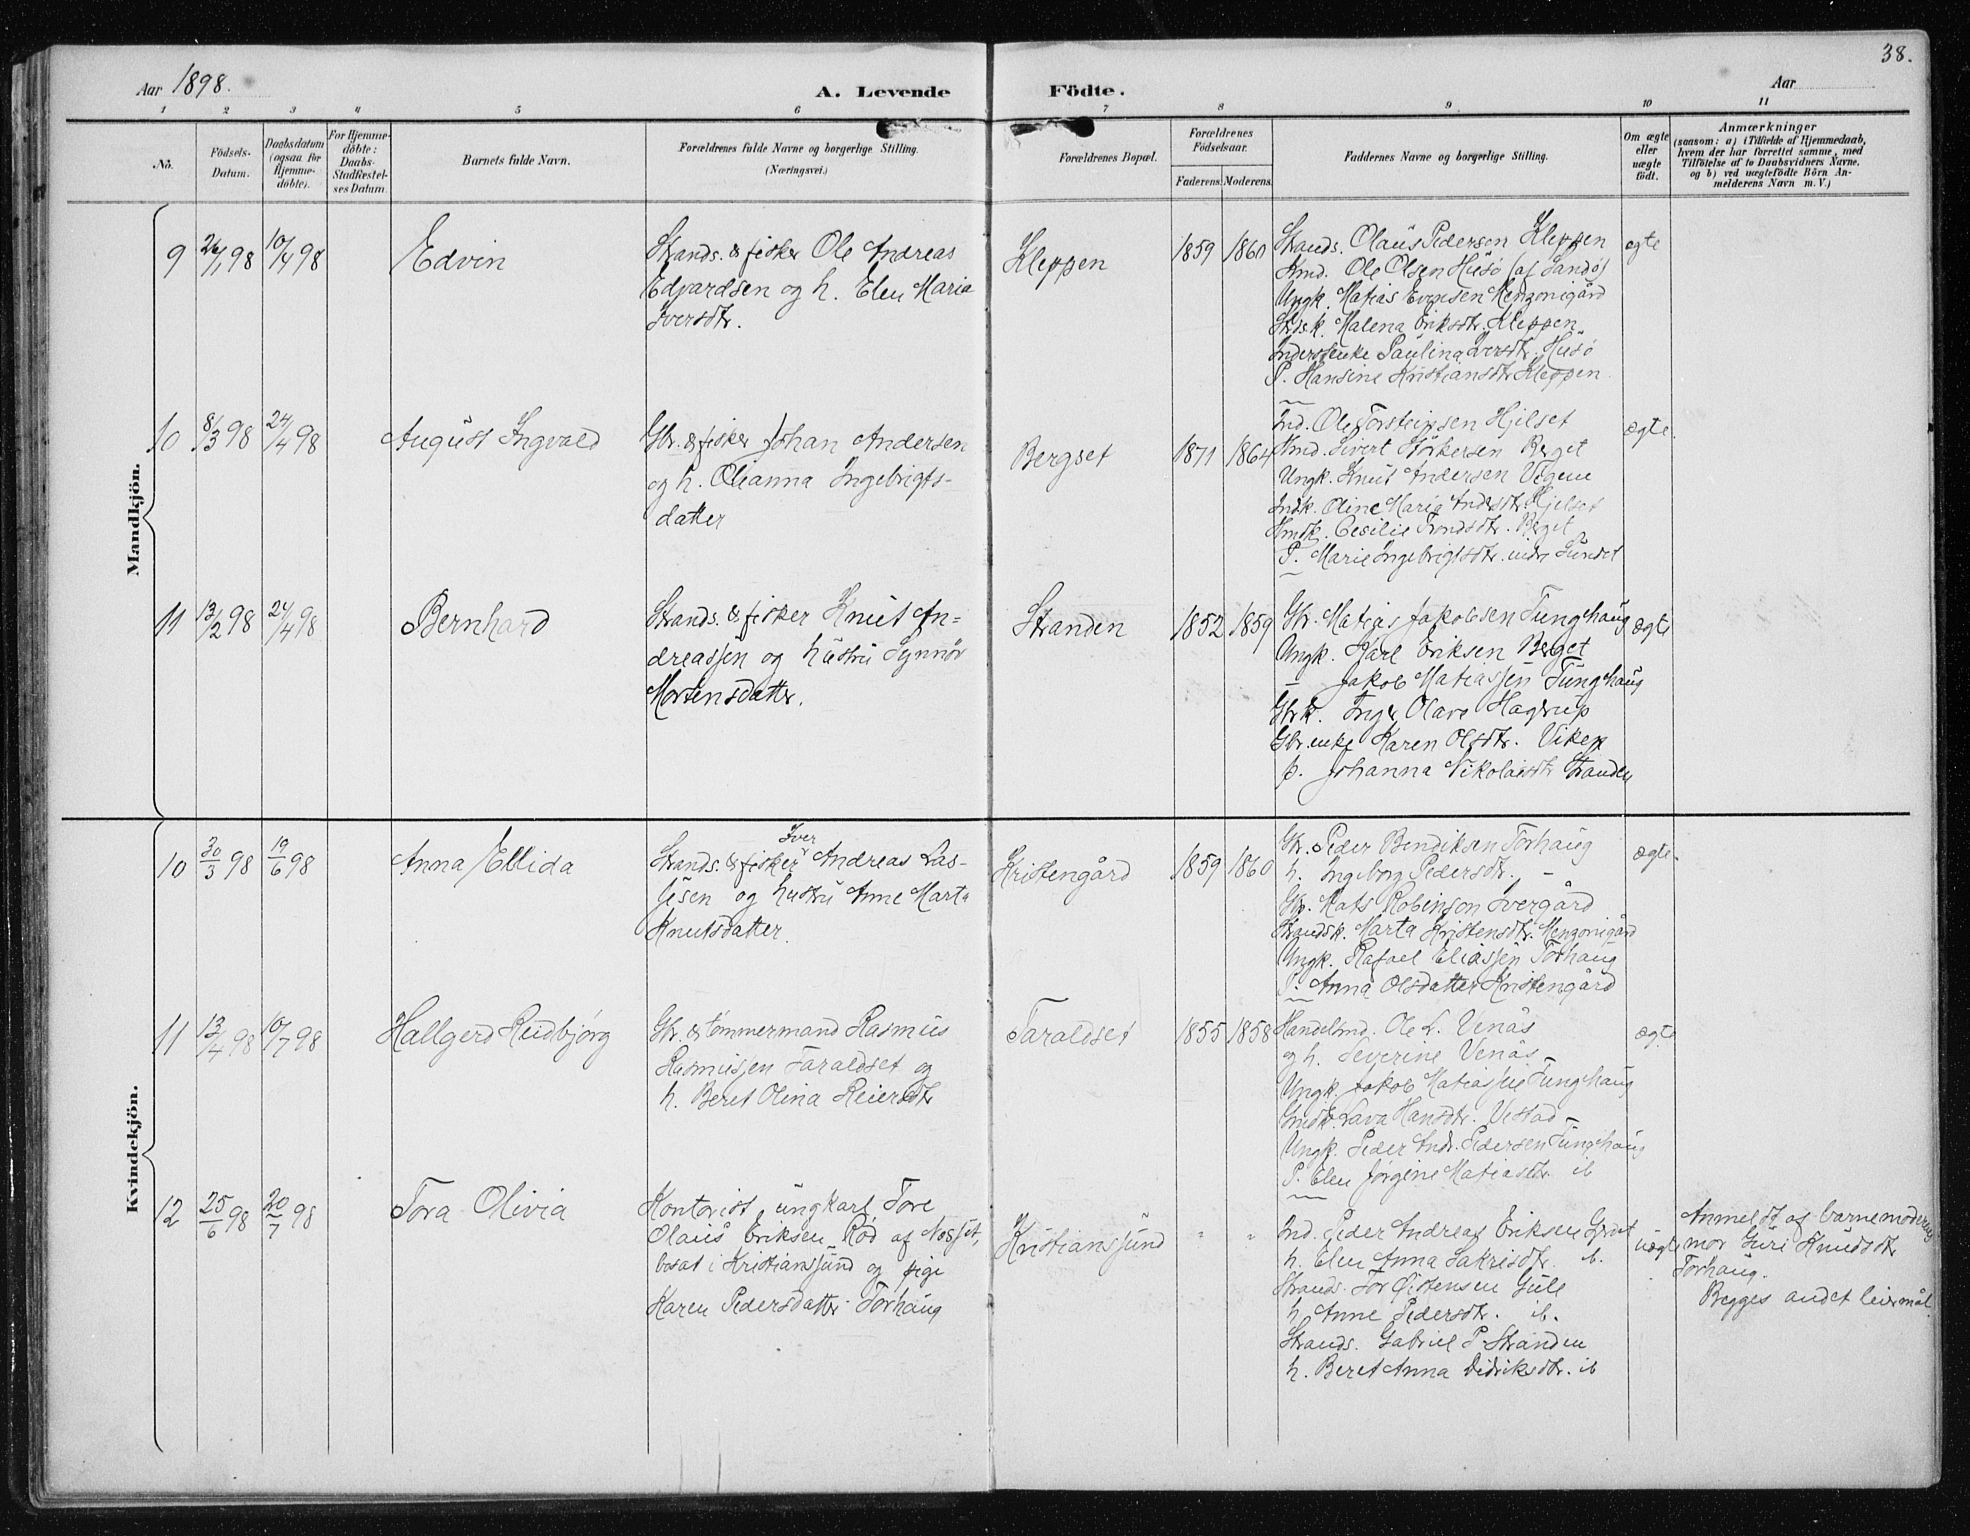 38.
Aar 1898.
A. Levende Födte.
Aar
1 2 3 4 5 6 7 8 9 10 11
No.
Födsels-Datum.
Daabsdatum (ogsaa for Hjemme-döbte).
For Hjemme-döbte: Daabs-Stadfæstel-ses Datum.
Barnets fulde Navn.
Forældrenes fulde Navne og borgerlige Stilling.
(Næringsvei.)
Forældrenes Bopæl.
Forældrenes Födselsaar.
Faderens. Moderens.
Faddernes Navne og borgerlige Stilling.
Om ægte eller uægte födt.
Anmærkninger
(saasom: a) i Tilfælde af Hjemmedaab,
hvem der har forrettet samme, med
Tilföielse af to Daabsvidners Navne,
og b) ved uægtefödte Börn An-
melderens Navn m. V.)
Mandkjön.
9 26/1 98 10/4 98
Edvin
Strands. & fisker Ole Andreas
Edvardsen og h. Elen Maria
Iversdtr.
Kleppen
1859 1860
Strands. Olaus Pedersen Kleppen
Kmd. Ole Olsen Husö (af Sandö)
Ungk. Matias Evensen Monzonigård
Malena Eriksdtr. Kleppen
Inderstenke Paulina Iversdtr. Husö
P. Hansine Kristiansdtr Kleppen
egte
10 8/3 98 24/4 98
August Ingvald
Gbr. & fisker Johan Andersen
og h. Olianna Ingebrigts-
datter
Bergset
1871 1864
Ind. Ole Torsteinsen Hjelset
Sivert Störkersen Berget
Ungk. Knut Andersen Vigem
Indk. Oline Maria Andrsdtr. Hjelset
Cecilie Trondsdtr. Berget
P. Marie Ingebrigtsdtr. indre Sundet
ægte.
11 13/2 98 24/4 98
Bernhard
Strands. & fisker Knut An-
dreassen og hustru Synnöv
Mortensdatter.
Stranden
1852 1859
Gbr. Matias Jakobsen Tunghaug
Ungk. Karl Eriksen Berget
— Jakob Matiassen Tunghaug
Gbrk. Inger Olave Hagrup
Gbr.enke Karen Olsdtr. Viken
p. Johanna Nikolaisdtr Stranden
ægte
Kvindekjön.
10 30/3 98 19/6 98
Anna Ellida
Iver
Strands. & fisker Andreas Las-
sesen og hustru Anne Marta
Knutsdatter.
Kristengård
1859 1860
Gbr. Peder Bendiksen Torhaug
h. Ingeborg Pedersdtr. —
Gbr. Mats Robinson Ivergård
Strandsk. Marta Kristensdtr. Monzonigård
Ungk. Rafael Eliassen Torhaug
P. Anna Olsdatter Kristengård
ægte.
11 13/4 98 10/7 98
Hallgerd Reidbjørg
Gbr. & tømmermand Rasmus
Rasmussen Taraldset og
h. Beret Olina Reiersdtr
Taraldset
1855 1858
Handelsmd. Ole L. Venås
og h. Severine Venås —
Ungk. Jakob Matiassen Tunghaug
Lava Hansdtr. Vestad —
Ungk. Peder Andr. Pedersen Tunghaug
P. Elen Jørgine Matiasdtr. ib
ægte
12 25/6 98 20/7 98
Tora Olivia
Kontorist, ungkarl Tore
Olaus Eriksen Rød af Nesset,
bosat i Kristianssund og pige
Karen Pedersdatter Torhaug
Kristianssund
" "
Ind. Peder Andreas Eriksen
h. Elen Anna Sakrisdtr. ib.
Strands. Tor Østensen Gule
h. Anne Pedersdtr. ib.
Strands. Gabriel P. Stranden
h. Beret Anna Didriksdtr. ib
uægte
Anmeldt af barnemoderens
mor Guri Knudsdtr
Torhaug.
Begges andet leiermål.